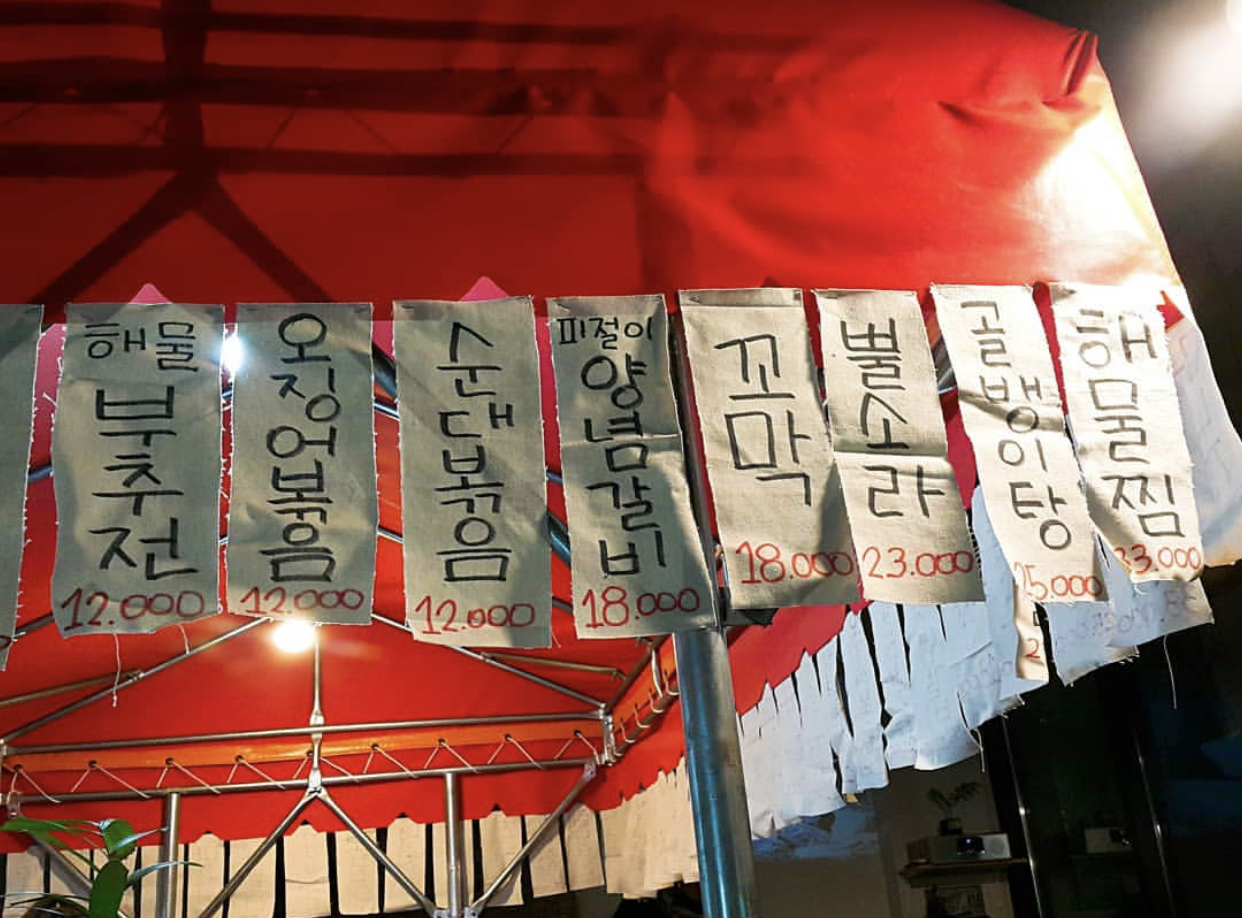 해물
부추전
12.000
오징어볶음
12.000
순대볶음
12.000
피절이
양념갈비
18.000
꼬막
18.000
뿔소라
23.000
골뱅이탕
25.000
해물찜
33.000
2